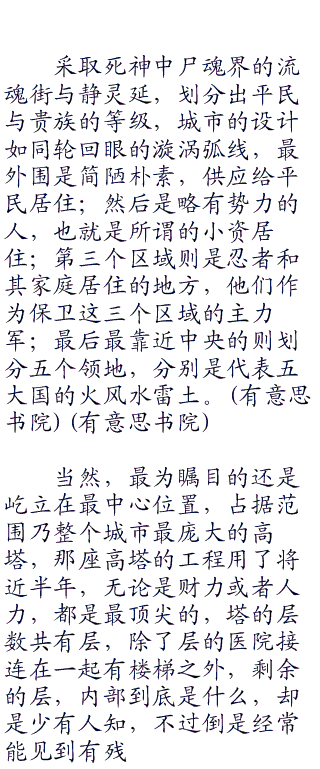 采取死神中尸魂界的流
魂街与静灵延，划分出平民
与贵族的等级，城市的设计
如同轮回眼的漩涡弧线，最
外围是简陋朴素，供应给平
民居住；然后是略有势力的
人，也就是所谓的小资居
住；第三个区域则是忍者和
其家庭居住的地方，他们作
为保卫这三个区域的主力
军；最后最靠近中央的则划
分五个领地，分别是代表五
大国的火风水雷土。(有意思
书院) (有意思书院)
当然，最为瞩目的还是
屹立在最中心位置，占据范
围乃整个城市最庞大的高
塔，那座高塔的工程用了将
近半年，无论是财力或者人
力，都是最顶尖的，塔的层
数共有层，除了层的医院接
连在一起有楼梯之外，剩余
的层，内部到底是什么，却
是少有人知，不过倒是经常
能见到有残